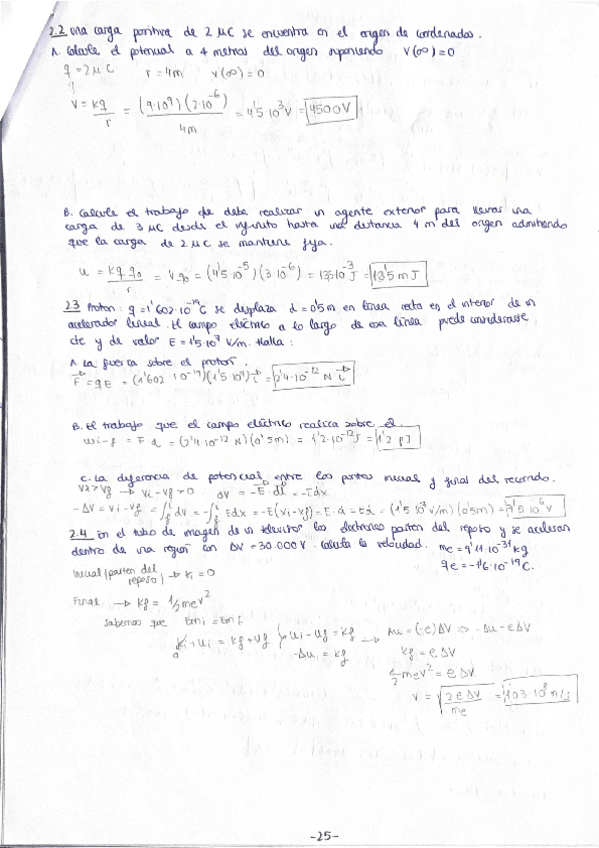 2.2 Una carga positiva de 2 μC se encuentra en el origen de coordenadas.
A. Calcule el potencial a 4 metros del origen suponiendo V(∞)=0
q=2μC r=4m V(∞)=0
V = kq/r = (9·10^9)(2·10^-6)/4m = 4'5·10^3 V = 4500V
B. Calcule el trabajo que debe realizar un agente exterior para llevar una
carga de 3 μC desde el infinito hasta una distancia 4 m del origen admitiendo
que la carga de 2 μC se mantiene fija.
u = kq q0/r = V q0 = (4'5·10^-5)(3·10^-6) = 13'5·10^-3 J = 13'5 mJ
2.3 Proton: q=1'602·10^-19 C se desplaza d=0'5m en linea recta en el interior de un
acelerador lineal. El campo eléctrico a lo largo de esa línea puede considerarse
cte y de valor E=1'5·10^7 V/m. Halla:
A. La fuerza sobre el proton.
F = qE = (1'602·10^-19)(1'5·10^7) i = 2'4·10^-12 N i
B. El trabajo que el campo eléctrico realiza sobre él.
Wi-f = F d = (2'4·10^-12 N)(0'5m) = 1'2·10^-12 J = 1'2 pJ
C. La diferencia de potencial entre los puntos inicial y final del recorrido.
Vi>Vf → Vi-Vf>0 dV = -E dl = -E dx
-ΔV = Vi-Vf = ∫ dV = -∫ E dx = -E(xi-xf) = E·d = Ed = (1'5·10^7 V/m)(0'5m) = 7'5·10^6 V
2.4 En el tubo de imagen de un televisor los electrones parten del reposo y se aceleran
dentro de una region con ΔV=30.000V. Calcula la velocidad. me = 9'11·10^-31 kg
qe = -1'6·10^-19 C.
Inicial (parten del reposo) → Ki = 0
Final → Kf = 1/2 mev^2
Sabemos que Emi = Emf
Ki + Ui = Kf + Uf } Ui - Uf = Kf → Δu = (-e)ΔV ⇒ -Δu = eΔV
0 -ΔU = Kf Kf = eΔV
1/2 mev^2 = eΔV
v = √(2eΔV/me) = 1'03·10^8 m/s
-25-